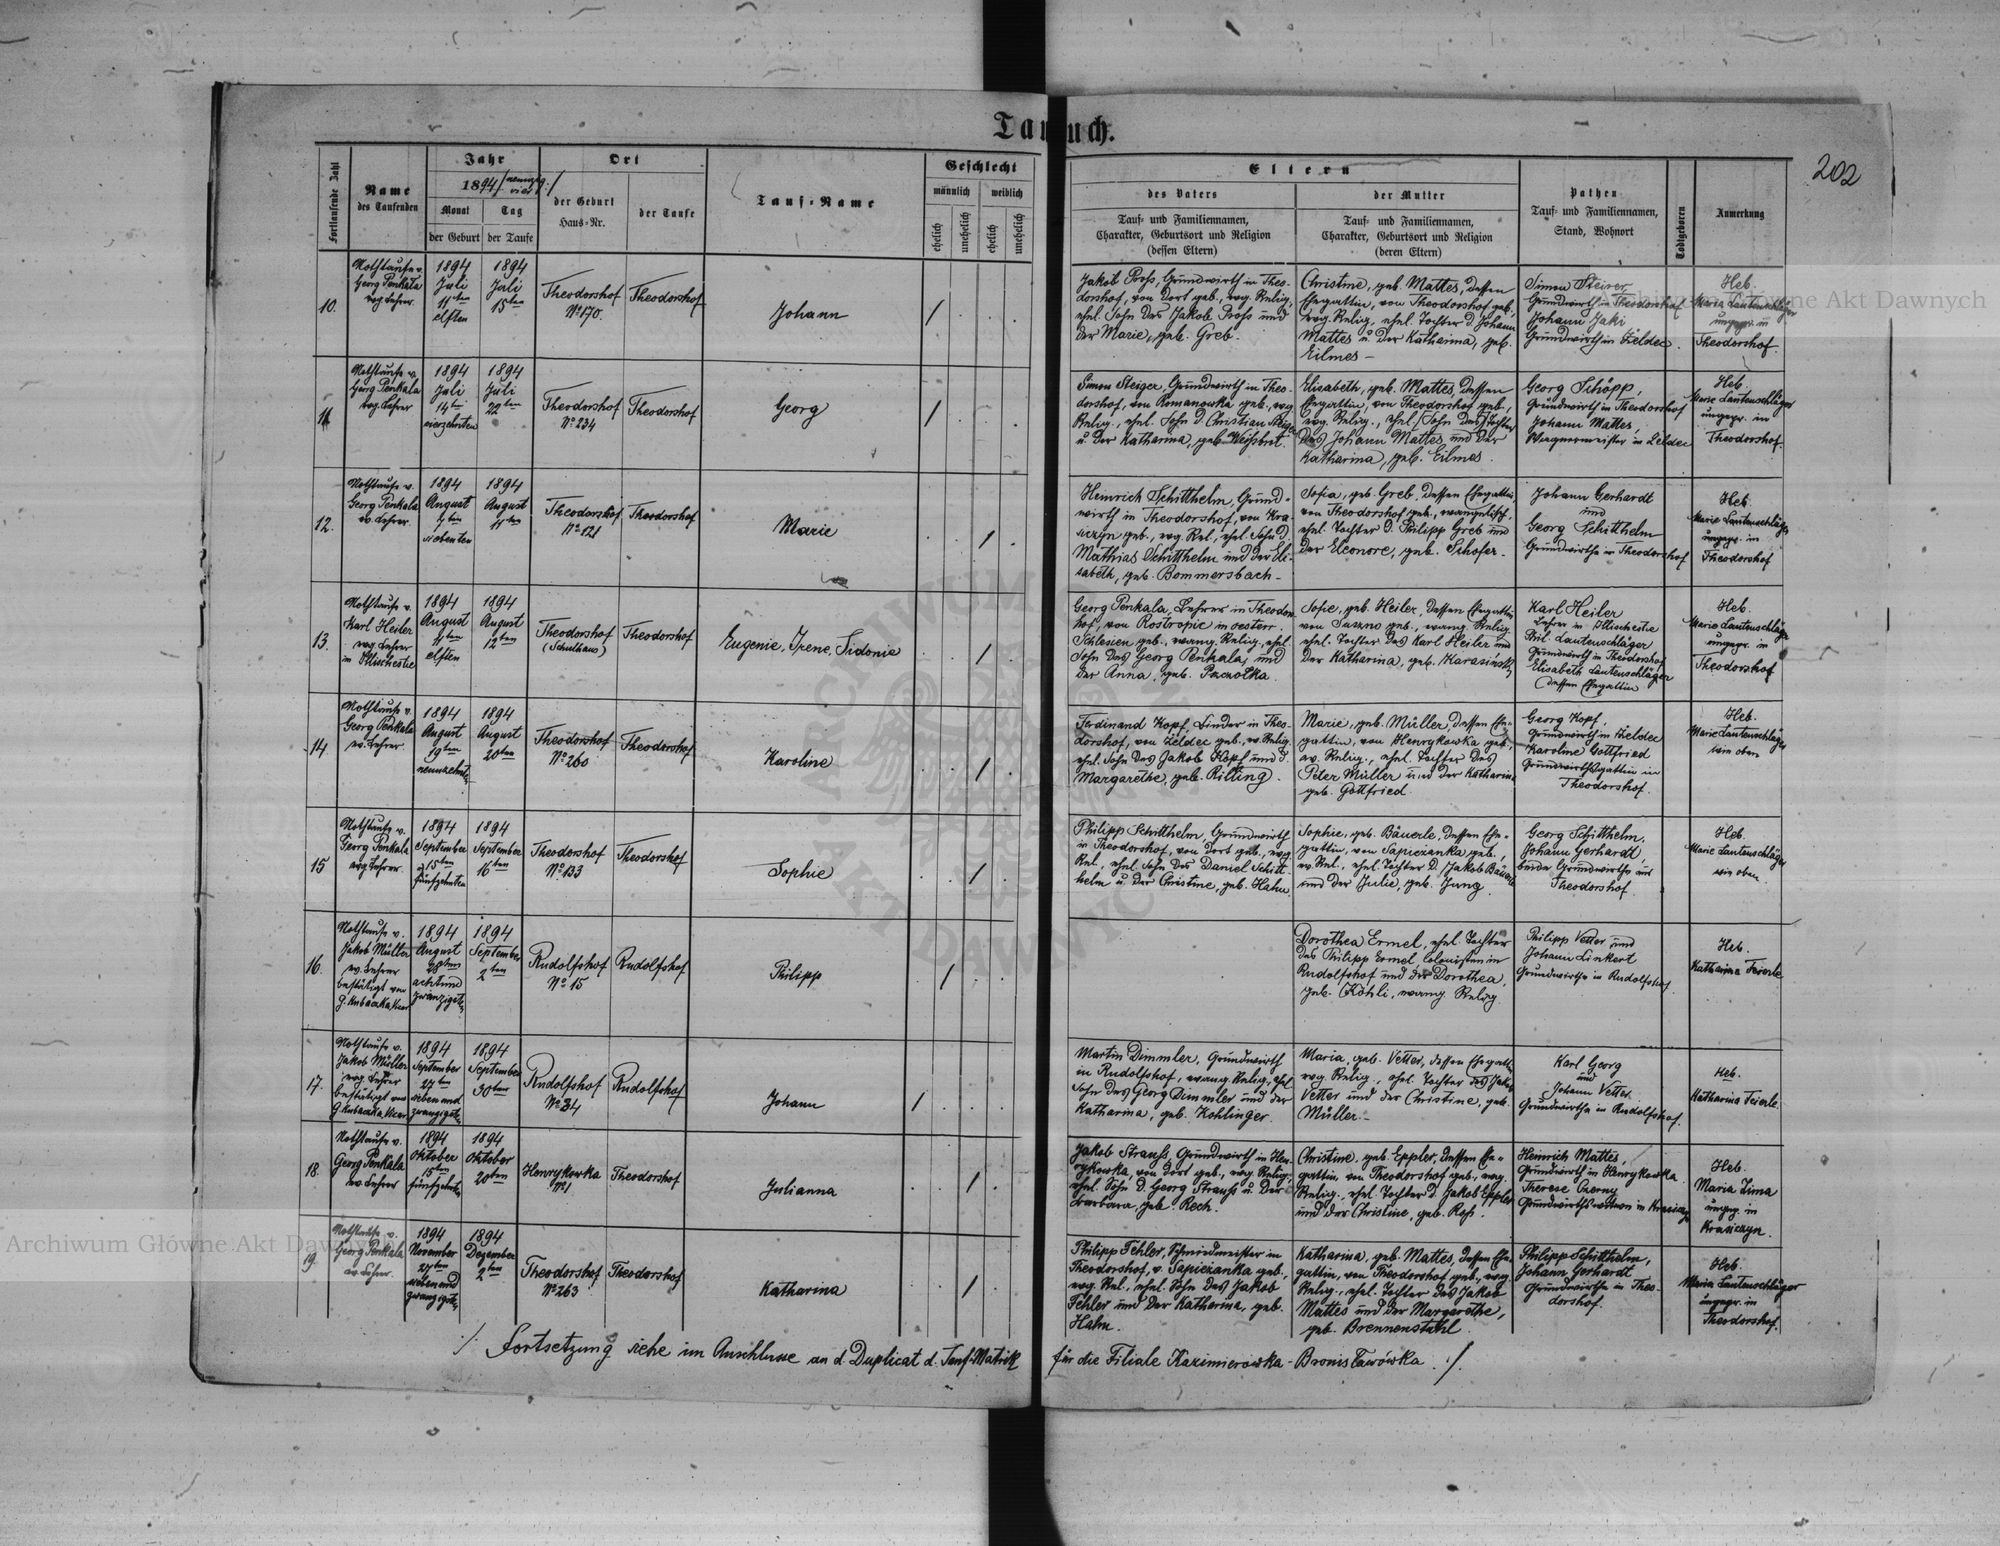 Taufbuch.
202
Fortlaufende Zahl
Name
des Taufenden
Jahr
1894
Monat
Tag
der Geburt
der Taufe
Ort
der Geburt
Haus-Nr.
der Taufe
Tauf-Name
Geschlecht
männlich
weiblich
ehelich
unehelich
ehelich
unehelich
Eltern
des Vaters
Tauf- und Familiennamen,
Charakter, Geburtsort und Religion
(dessen Eltern)
der Mutter
Tauf- und Familiennamen,
Charakter, Geburtsort und Religion
(deren Eltern)
Pathen
Tauf- und Familiennamen,
Stand, Wohnort
Todtgeboren
Anmerkung
10.
Nothtaufe v.
Georg Penkala
evg. Lehrer.
1894
Juli
11ten
elften
1894
Juli
15ten
Theodorshof
No 170.
Theodorshof
Johann
Jakob Pross, Grundwirth in Theo-
dorshof, von dort geb., evg. Relig.,
ehel. Sohn des Jakob Pross und
der Marie, geb. Greb.
Christine, geb. Mattes, dessen
Ehegattin, von Theodorshof geb.,
evg. Relig., ehel. Tochter d. Johann
Mattes u. der Katharina, geb.
Eilmes –
Simon Steirer
Grundwirth in Theodorshof
Johann Jaki
Grundwirth in Zeldec.
Heb.
Maria Lautenschläger
ungepr. in
Theodorshof.
11.
Nothtaufe v.
Georg Penkala
evg. Lehrer
1894
Juli
14ten
vierzehnten
1894
Juli
22ten
Theodorshof
No 234
Theodorshof
Georg
Simon Steiger, Grundwirth in Theo-
dorshof, von Romanowka geb., evg.
Relig., ehel. Sohn d. Christian Steiger
u. der Katharina, geb. Weissbrot.
Elisabeth, geb. Mattes, dessen
Ehegattin, von Theodorshof geb.,
evg. Relig., ehel. Sohn des/Tochter
des Johann Mattes und der
Katharina, geb. Eilmes.
Georg Schöpp,
Grundwirth in Theodorshof
Johann Mattes,
Wagnermeister in Zeldec
Heb.
Marie Lautenschläger
ungepr. in
Theodorshof.
12.
Nothtaufe v.
Georg Penkala
ev. Lehrer.
1894
August
7ten
siebenten
1894
August
11ten
Theodorshof
No 121
Theodorshof
Marie
Heinrich Schitthelm, Grund-
wirth in Theodorshof, von Kra-
siczyn geb., evg. Rel., ehel. Sohn d.
Mathias Schitthelm und der Eli-
sabeth, geb. Bommersbach –
Sofia, geb. Greb, dessen Ehegattin,
von Theodorshof geb., evangelisch,
ehel. Tochter d. Philipp Greb und
der Eleonore, geb. Schofer –
Johann Gerhardt
und
Georg Schitthelm
Grundwirthe in Theodorshof
Heb.
Marie Lautenschläger
ungepr. in
Theodorshof
13.
Nothtaufe v.
Karl Heiler
evg. Lehrer
in Ilischestie
1894
August
11ten
elften
1894
August
12ten
Theodorshof
(Schulhaus)
Theodorshof
Eugenie, Irene, Sidonie
Georg Penkala, Lehrer in Theodors-
hof, von Rostropic in oesterr.
Schlesien geb., evang. Relig., ehel.
Sohn des Georg Penkala, und
der Anna, geb. Pszczolka.
Sofie, geb. Heiler, dessen Ehegattin
geb., evang. Relig.
ehel. Tochter des Karl Heiler und
der Katharina, geb. Karasinski
Karl Heiler
Lehrer in Illischestie
Phil. Lautenschläger
Grundwirth in Theodorshof
Elisabeth Lautenschläger
dessen Ehegattin
Heb.
Marie Lautenschläger
ungepr. in
Theodorshof
14.
Nothtaufe v.
Georg Penkala
ev. Lehrer.
1894
August
19ten
neunzehnten
1894
August
20ten
Theodorshof
No 260
Theodorshof
Karoline
Ferdinand Kopf, Binder in Theo-
dorshof, von Zeldec geb., ev. Relig.
ehel. Sohn des Jakob Kopf und d.
Margarethe, geb. Rilling.
Marie, geb. Müller, dessen Ehe-
gattin, von Henrykowka geb.,
ev. Relig., ehel. Tochter des
Peter Müller und der Katharina
geb. Gottfried.
Georg Kopf,
Grundwirth in Zeldec
Karoline Gottfried
Grundwirthsgattin in
Theodorshof.
Heb.
Marie Lautenschläger
wie oben
15
Nothtaufe v.
Georg Penkala
evg. Lehrer.
1894
September
15ten
fünfzehnten
1894
September
16ten
Theodorshof
No 133
Theodorshof
Sophie
Philipp Schitthelm, Grundwirth
in Theodorshof, von dort geb., evg.
Rel., ehel. Sohn des Daniel Schitt-
helm u. der Christine, geb. Hahn.
Sophie, geb. Bäuerle, dessen Ehe-
gattin, von Sapiezanka geb.,
ev. Rel., ehel. Tochter d. Jakob Bäuerle
und der Julie, geb. Jung.
Georg Schitthelm,
Johann Gerhardt,
beide Grundwirthe aus
Theodorshof.
Heb.
Marie Lautenschläger
wie oben.
16.
Nothtaufe v.
Jakob Müller
ev. Lehrer
bestätigt von
G. Kubaczka, Vicar
1894
August
28ten
achtund
zwanzigsten
1894
September
2ten
Rudolfshof
No 15
Rudolfshof
Philipp
Dorothea Ermel, ehel. Tochter
des Philipp Ermel, Colonisten in
Rudolfshof und der Dorothea,
geb. Köhli, evang. Relig.
Philipp Vetter und
Johann Linkert
Grundwirthe in Rudolfshof.
Heb.
Katharina Feierle
17.
Nothtaufe v.
Jakob Müller
evg. Lehrer
bestätigt von
G. Kubaczka, Vicar.
1894
September
27ten
sieben und
zwanzigsten
1894
September
30ten
Rudolfshof
No 34
Rudolfshof
Johann
Martin Dimmler, Grundwirth
in Rudolfshof, evang. Relig., ehel.
Sohn des Georg Dimmler und der
Katharina, geb. Kohlinger.
Maria, geb. Vetter, dessen Ehegattin
evg. Relig., ehel. Tochter des Jakob
Vetter und der Christine, geb.
Müller. –
Karl Georg
und
Johann Vetter.
Grundwirthe in Rudolfshof.
Heb.
Katharina Feierle
18.
Nothtaufe v.
Georg Penkala
ev. Lehrer
1894
Oktober
15ten
fünfzehnten
1894
Oktober
20ten
Henrykowka
No 1
Theodorshof
Julianna
Jakob Strauss, Grundwirth in Hen-
rykowka, von dort geb., evg. Relig.,
ehel. Sohn d. Georg Strauss u. der
Barbara, geb. Rech.
Christine, geb. Eppler, dessen Ehe-
gattin, von Theodorshof geb., evg.
Relig., ehel. Tochter d. Jakob Eppler
und der Christine, geb. Ress.
Heinrich Mattes,
Grundwirth in Henrykowka
Therese Czerny
Grundwirthswitwe in Krasiczyn
Heb.
Maria Zima
ungepr. in
Krasiczyn.
19.
Nothtaufe v.
Georg Penkala
ev. Lehrer.
1894
November
27ten
sieben und
zwanzigsten
1894
Dezember
2ten
Theodorshof
No 263
Theodorshof
Katharina
Philipp Fehler, Schmiedmeister in
Theodorshof, v. Sapiezanka geb.,
evg. Rel., ehel. Sohn des Jakob
Fehler und der Katharina, geb.
Hahn.
Katharina, geb. Mattes, dessen Ehe-
gattin, von Theodorshof geb., evg.
Relig., ehel. Tochter des Jakob
Mattes und der Margarethe,
geb. Brennenstuhl.
Philipp Schitthelm,
Johann Gerhardt
Grundwirthe in Theo-
dorshof.
Heb.
Maria Lautenschläger
ungepr. in
Theodorshof.
./. Fortsetzung siehe im Anschlusse an d. Duplicat d. Tauf-Matrik für die Filiale Kazimierowka-Bronisławówka ./.
Archiwum Główne Akt Dawnych
Archiwum Główne Akt Dawnych
ARCHIWUM
AKT DAWNYCH